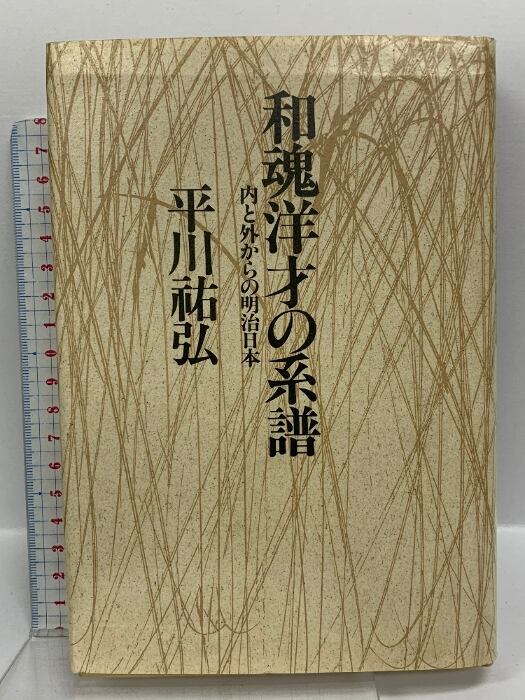 和魂洋才の系譜
内と外からの明治日本
平川祐弘
8
7
6
5
4
3
2
1
20
9
8
7
6
5
4
3
2
1